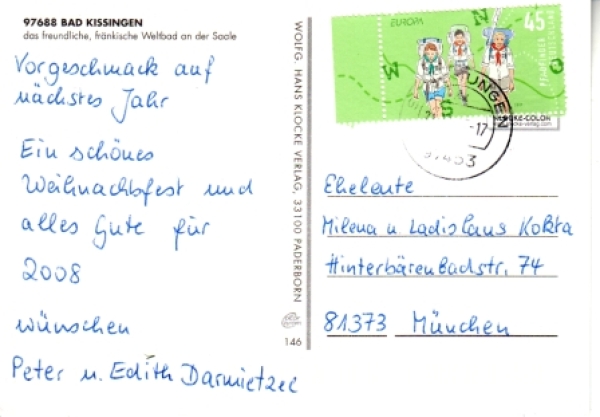 97688 BAD KISSINGEN
das freundliche, fränkische Weltbad an der Saale
Vorgeschmack auf
nächstes Jahr
Ein schönes
Weihnachtsfest und
alles Gute für
2008
wünschen
Peter u. Edith Darmietzel
WOLFG. HANS KLOCKE VERLAG, 33100 PADERBORN
146
EUROPA
45
PFADFINDER
DEUTSCHLAND
N
W
S
O
-17
97453
Eheleute
Milena u. Ladislaus Kokta
Hinterbärenbadstr. 74
81373 München